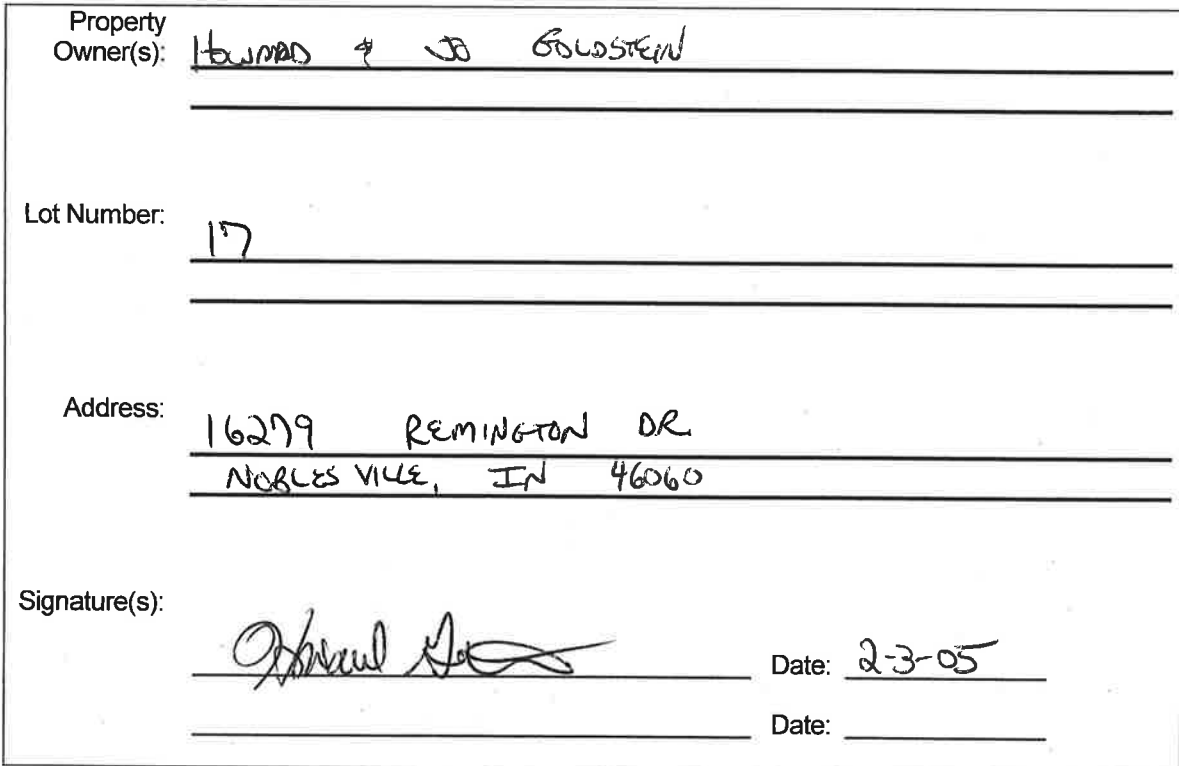 Property
Owner(s): HOWARD & JO GOLDSTEIN
Lot Number: 17
Address: 16279 REMINGTON DR.
NOBLESVILLE, IN 46060
Signature(s): Howard
Date: 2-3-05
Date: